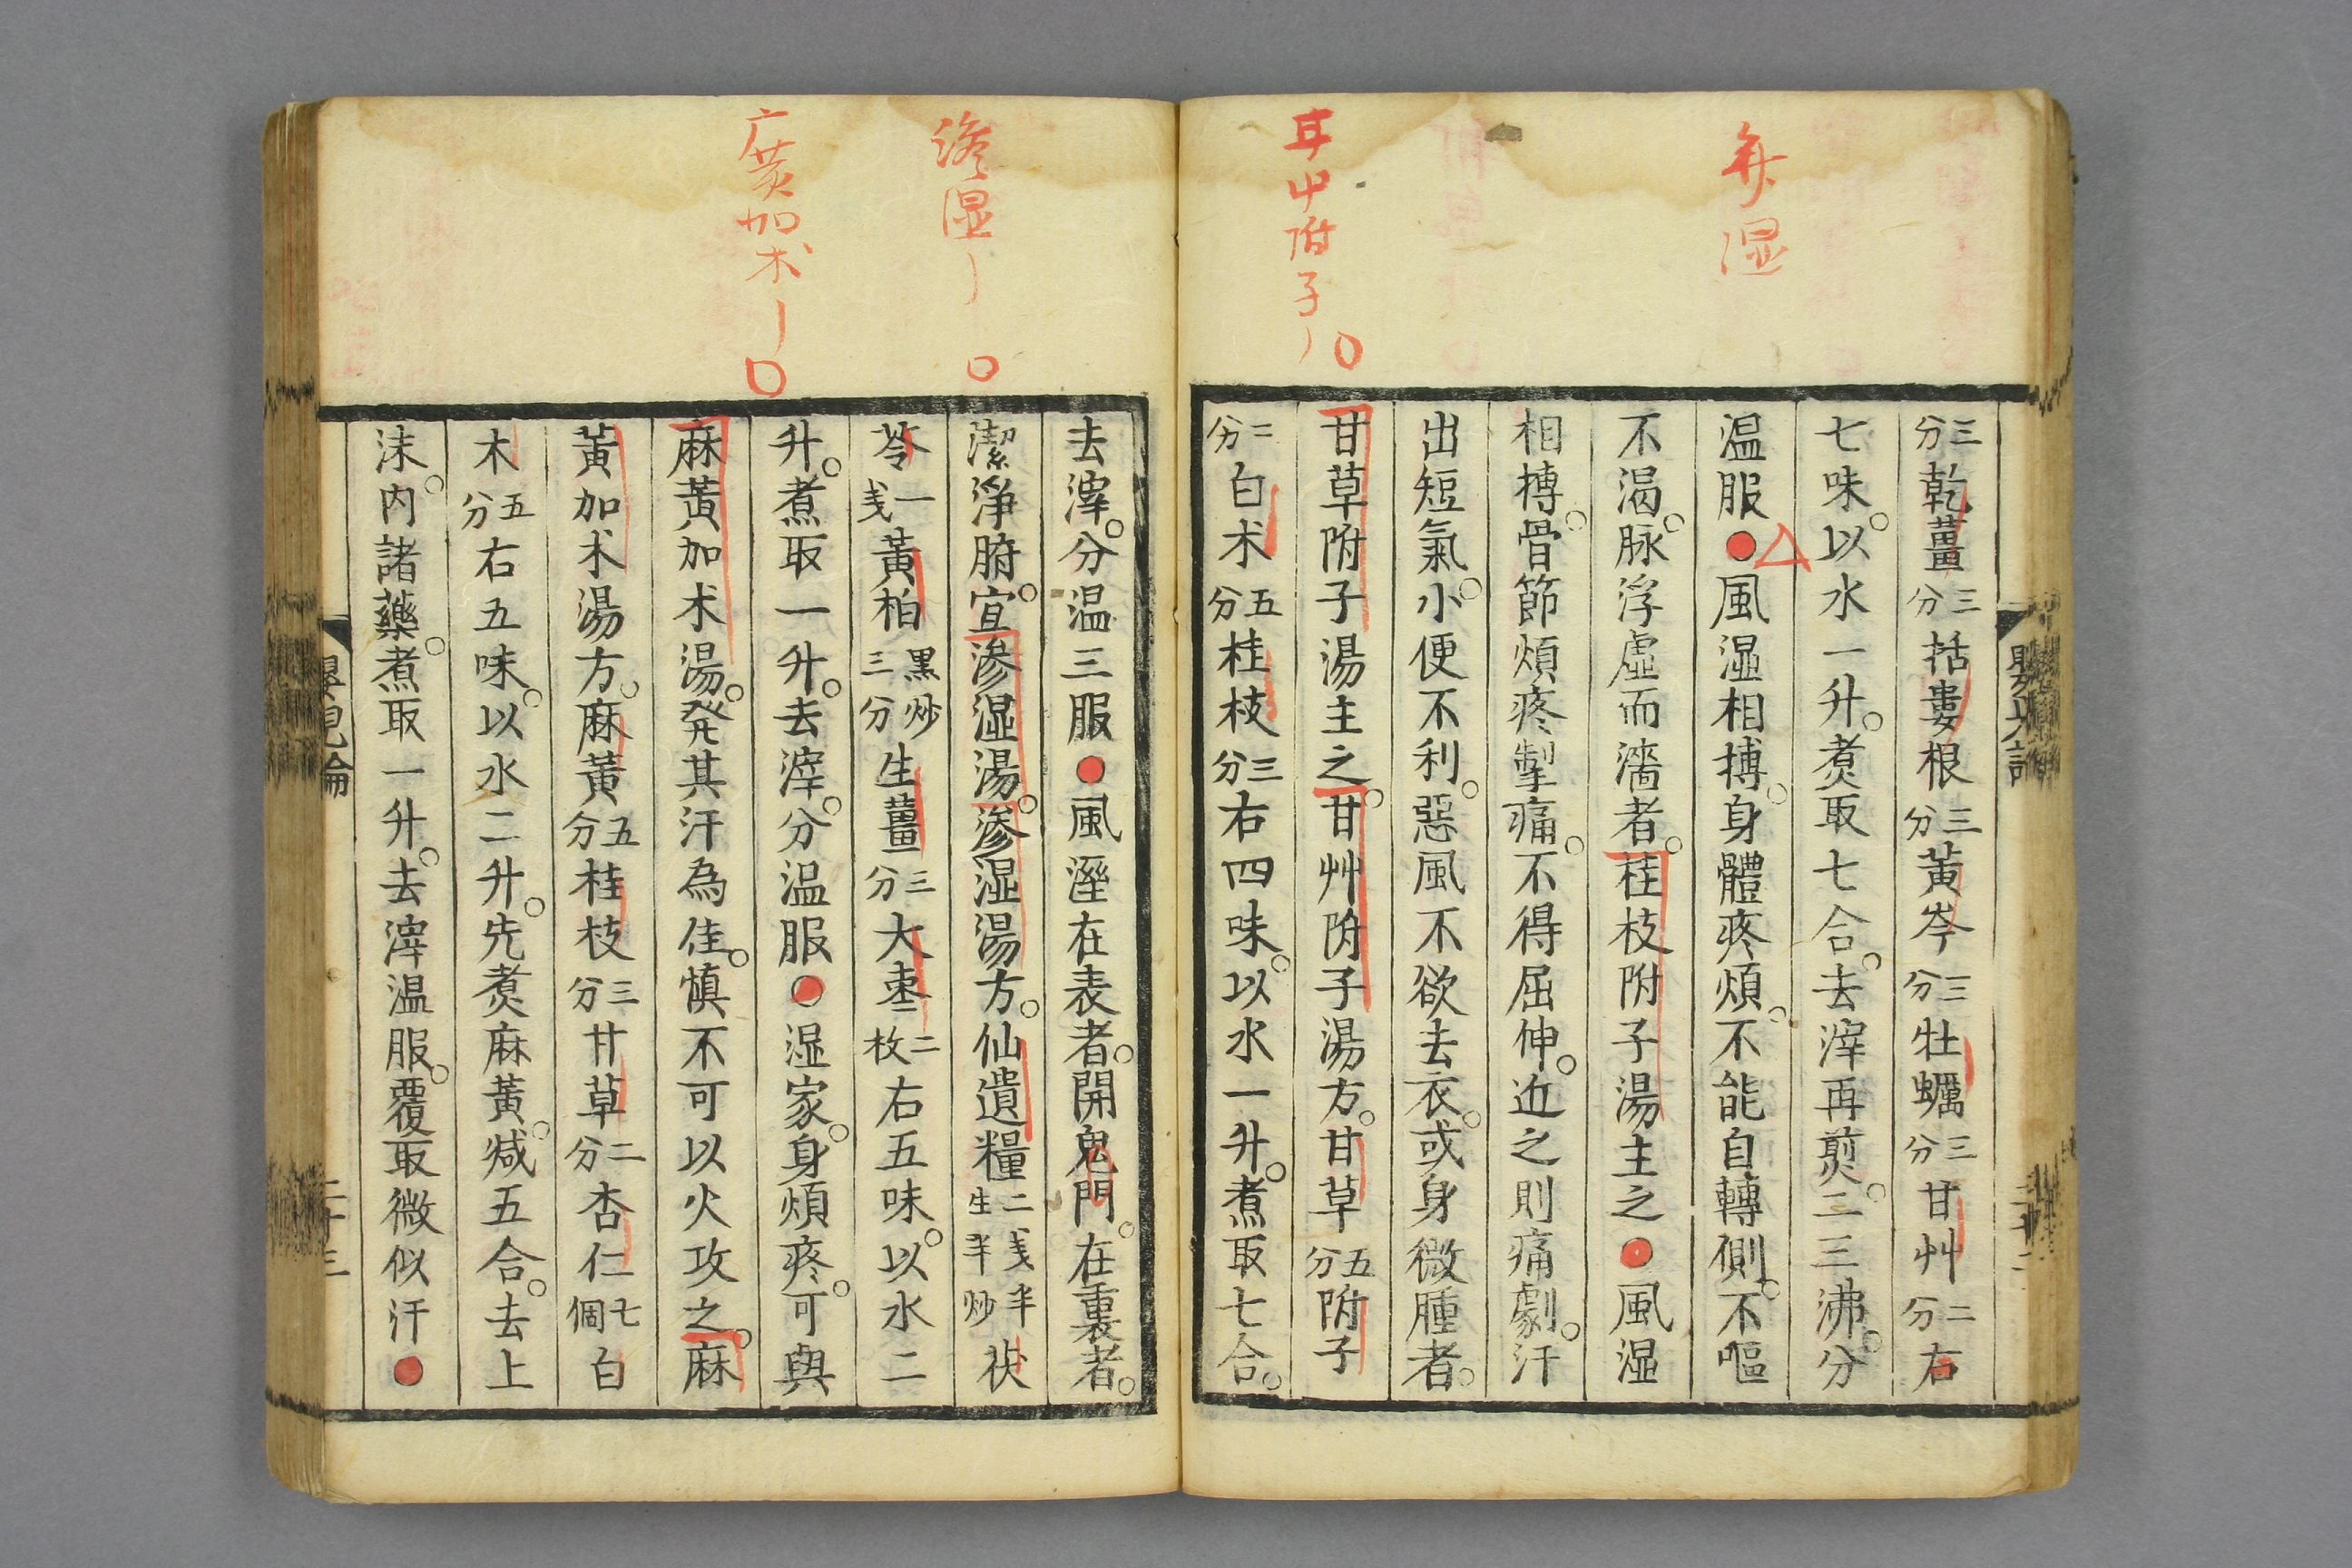 弁湿
甘中附子
三分乾薑三分括蔞根三分黃岑三分牡蠣三分甘艸二分右
七味。以水一升。煑取七合。去滓再煎。二三沸。分
温服●風湿相搏。身體疼煩。不能自轉側。不嘔
不渴。脉浮虛而濇者。桂枝附子湯主之●風湿
相搏。骨節煩疼掣痛。不得屈伸。近之則痛劇。汗
出短氣。小便不利。惡風不欲去衣。或身微腫者。
甘草附子湯主之。甘艸附子湯方。甘草五分附子
二分白朮五分桂枝三分右四味。以水一升。煮取七合。
滲湿
广黄加朮
去滓。分温三服●風溼在表者。開鬼門。在裏者。
潔淨腑。宜滲湿湯。滲湿湯方。仙遺糧二戔半生半炒茯
苓一戔黃柏黑炒三分生薑三分大棗二枚右五味。以水二
升。煮取一升。去滓。分温服●湿家。身煩疼。可與
麻黃加朮湯。発其汗為佳。慎不可以火攻之。麻
黃加朮湯方。麻黃五分桂枝三分甘草二分杏仁七個白
朮五分右五味。以水二升。先煑麻黃。減五合。去上
沫。内諸藥。煮取一升。去滓温服。覆取微似汗●
二十三